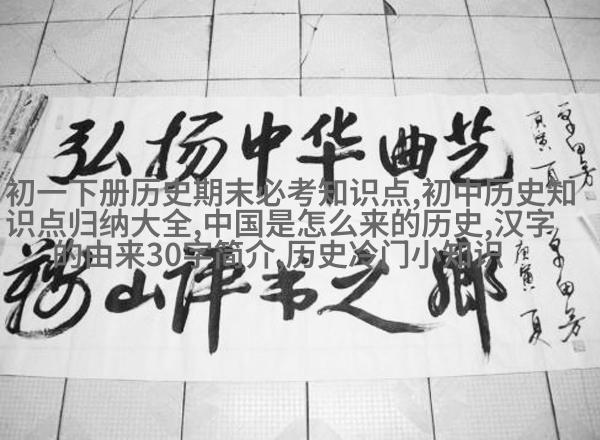 弘扬中华曲艺
单田芳
庚寅夏
初一下册历史期末必考知识点,初中历史知
识点归纳大全,中国是怎么来的历史,汉字
的由来30字简介,历史冷门小知识
鞍山评书之鄉
单田芳
庚寅夏